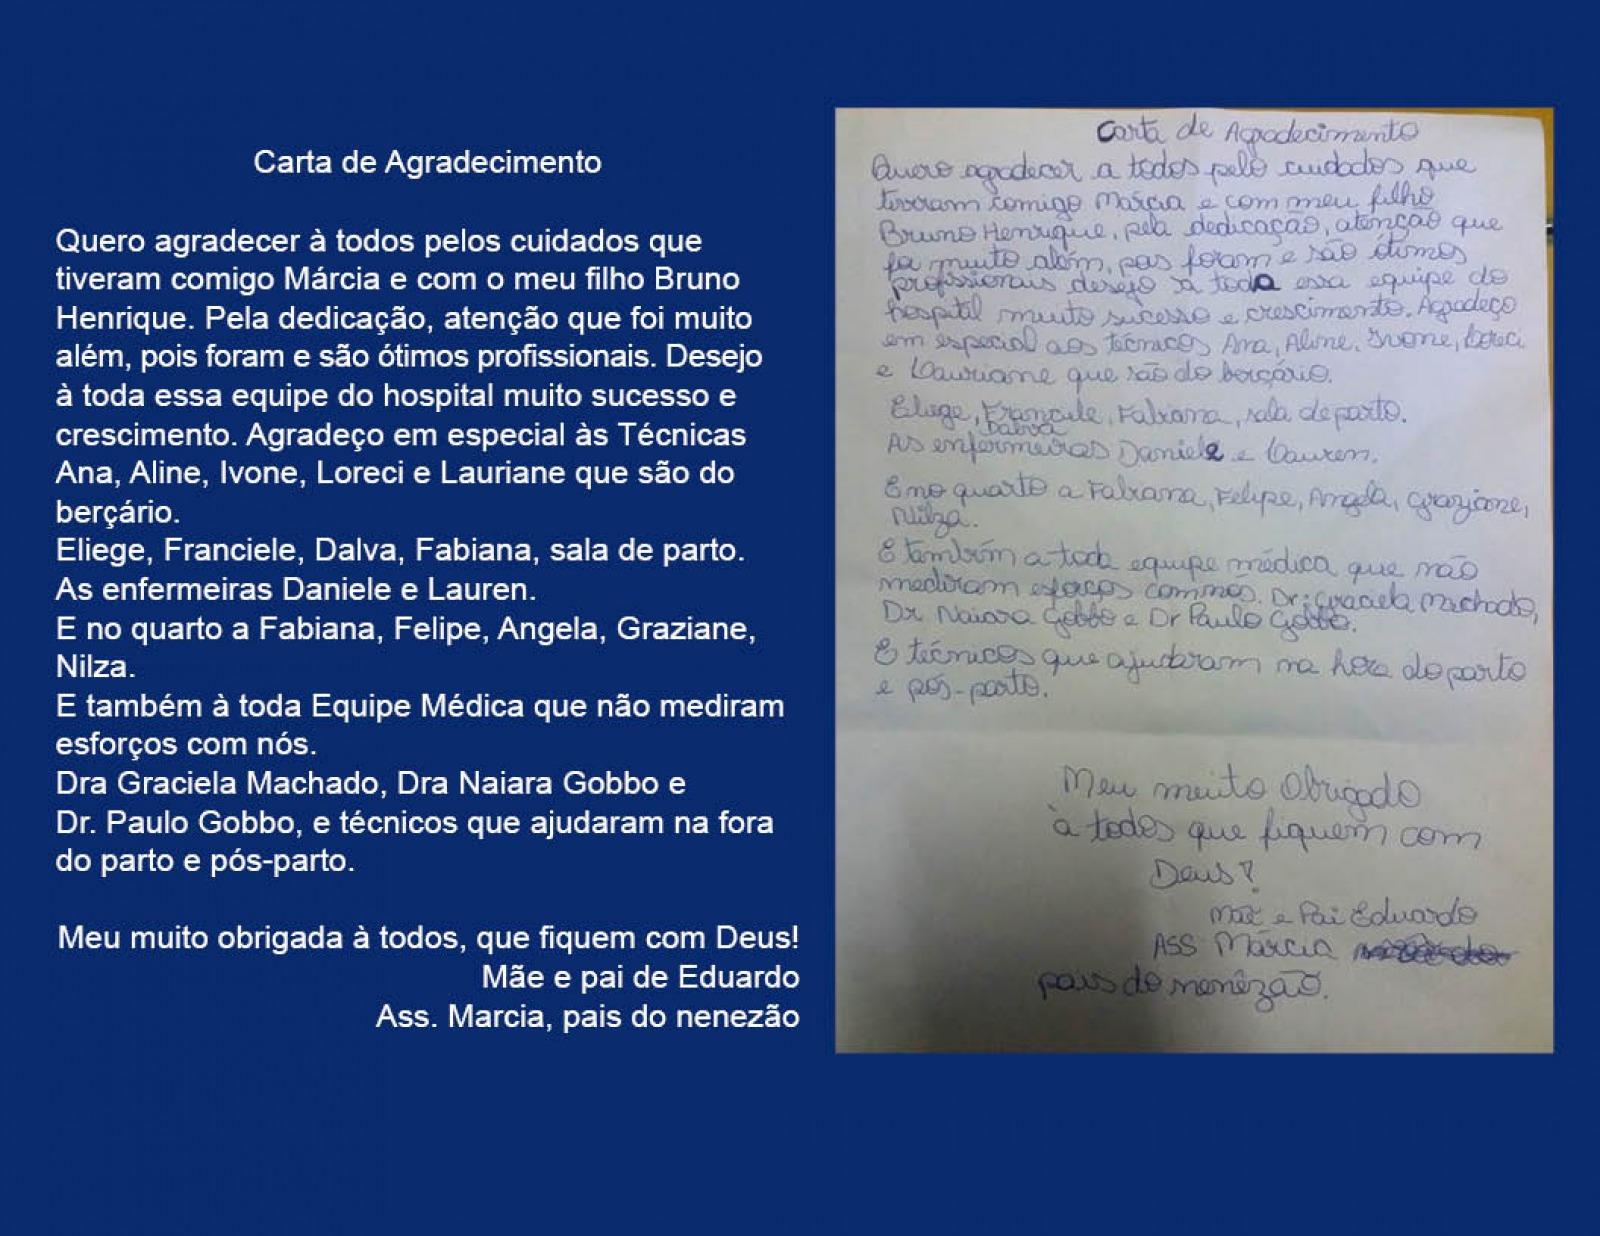 Carta de Agradecimento
Quero agradecer à todos pelos cuidados que
tiveram comigo Márcia e com o meu filho Bruno
Henrique. Pela dedicação, atenção que foi muito
além, pois foram e são ótimos profissionais. Desejo
à toda essa equipe do hospital muito sucesso e
crescimento. Agradeço em especial às Técnicas
Ana, Aline, Ivone, Loreci e Lauriane que são do
berçário.
Eliege, Franciele, Dalva, Fabiana, sala de parto.
As enfermeiras Daniele e Lauren.
E no quarto a Fabiana, Felipe, Angela, Graziane,
Nilza.
E também à toda Equipe Médica que não mediram
esforços com nós.
Dra Graciela Machado, Dra Naiara Gobbo e
Dr. Paulo Gobbo, e técnicos que ajudaram na fora
do parto e pós-parto.
Meu muito obrigada à todos, que fiquem com Deus!
Mãe e pai de Eduardo
Ass. Marcia, pais do nenezão
Carta de Agradecimento
Quero agradecer a todos pelo cuidados que
tiveram comigo Márcia e com meu filho
Bruno Henrique, pela dedicação, atenção que
foi muito além, pos foram e são ótimos
profissionais desejo a toda essa equipe do
hospital muito sucesso e crescimento. Agradeço
em especial aos técnicos Ana, Aline, Ivone, Loreci
e Lauriane que são do berçário.
Eliege, Franciele, Fabiana, sala de parto.
Dalva
As enfermeiras Daniele e Lauren.
E no quarto a Fabiana, Felipe, Angela, Graziane,
Nilza.
E também a toda equipe médica que não
mediram esforços com nós. Dr: Graciela Machado,
Dr Naiara Gobbo e Dr Paulo Gobbo.
E técnicos que ajudaram na hora do parto
e pós-parto.
Meu muito Obrigado
à todos que fiquem com
Deus!
Mãe e Pai Eduardo
ASS Márcia
pais do nenêzão.